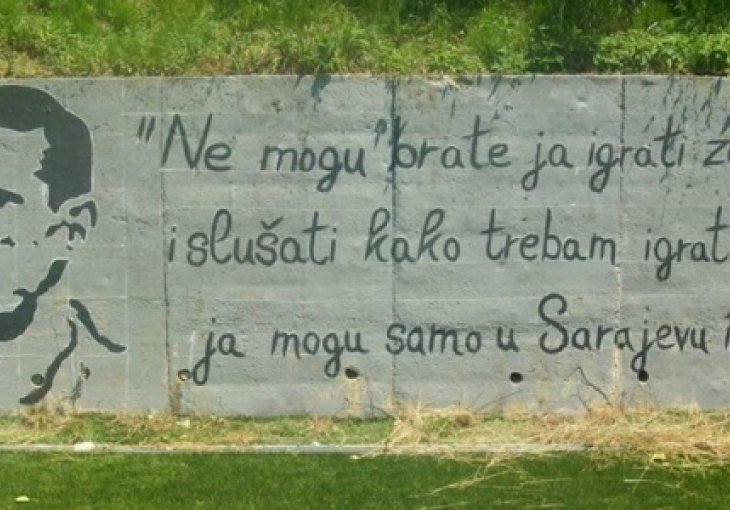 "Ne mogu brate ja igrati
i slušati kako trebam igrat
ja mogu samo u Sarajevu